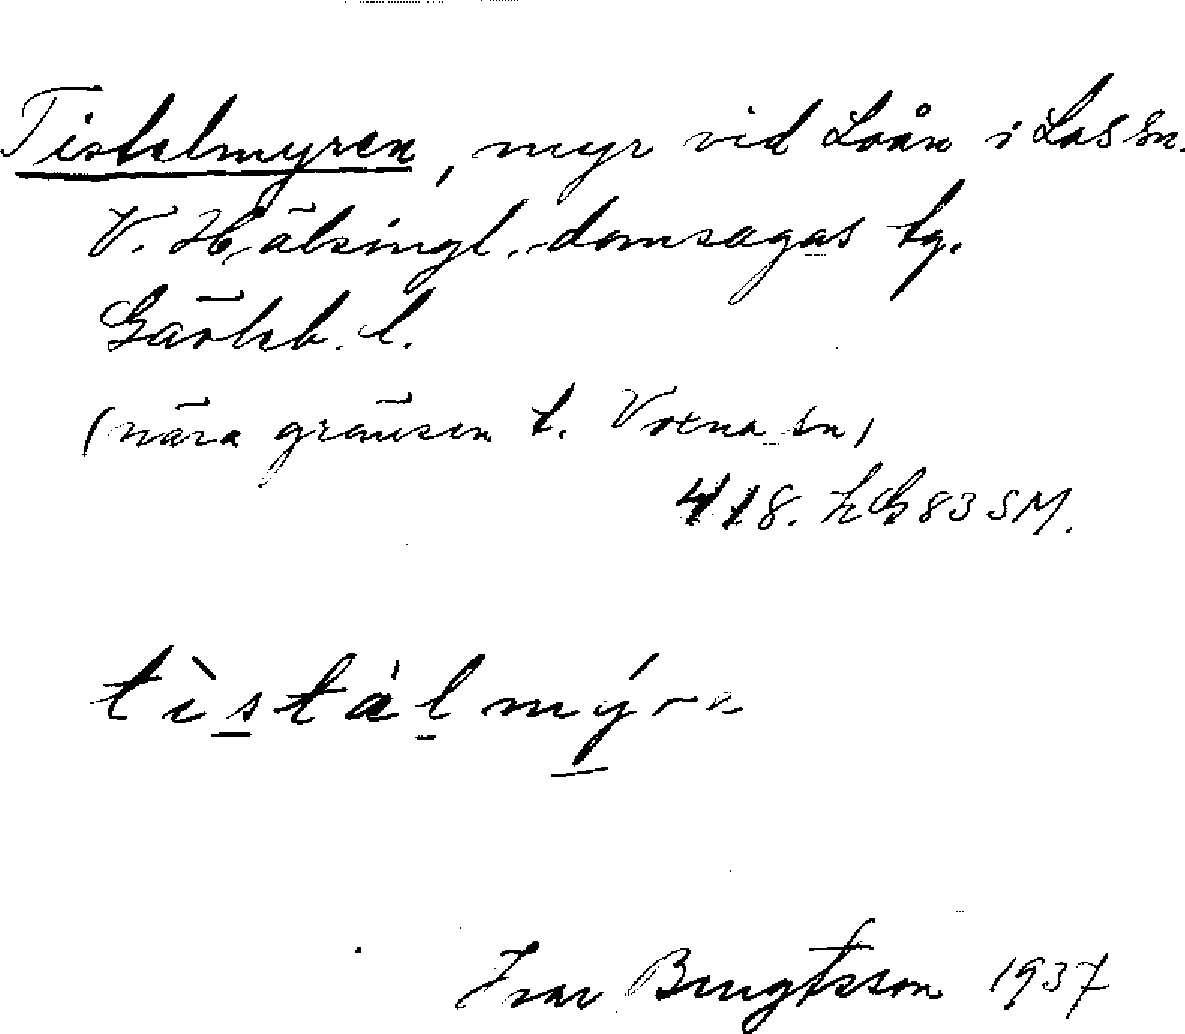 Tistelmyren, myr vid Loån i Los sn.
V. Hälsingl. domsagas tg.
Gävleb. l.
(nära gränsen t. Voxna sn)
418. LG 83 SM.
tìstálmýra
Ivar Bengtsson 1937